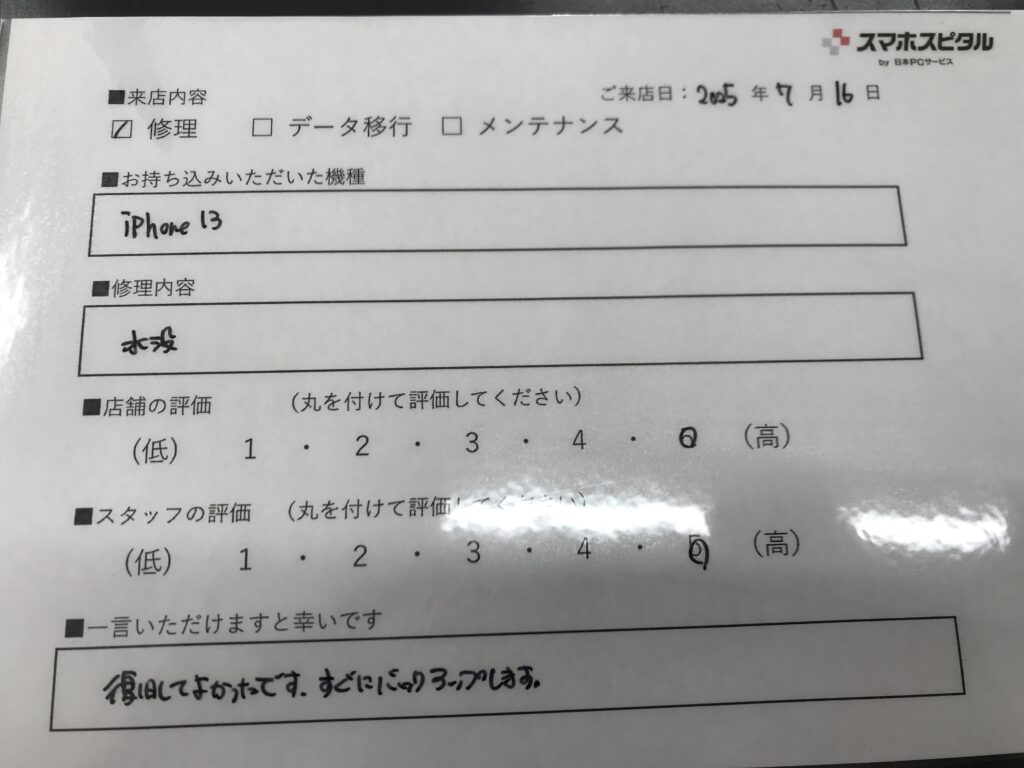 スマホスピタル
by 日本PCサービス
ご来店日：2025 年 7 月 16 日
■来店内容
☑ 修理 □ データ移行 □ メンテナンス
■お持ち込みいただいた機種
iPhone 13
■修理内容
水没
■店舗の評価 （丸を付けて評価してください）
（低） 1 ・ 2 ・ 3 ・ 4 ・ 5 （高）
■スタッフの評価 （丸を付けて評価してください）
（低） 1 ・ 2 ・ 3 ・ 4 ・ 5 （高）
■一言いただけますと幸いです
復旧してよかったです、すぐにバックアップします。